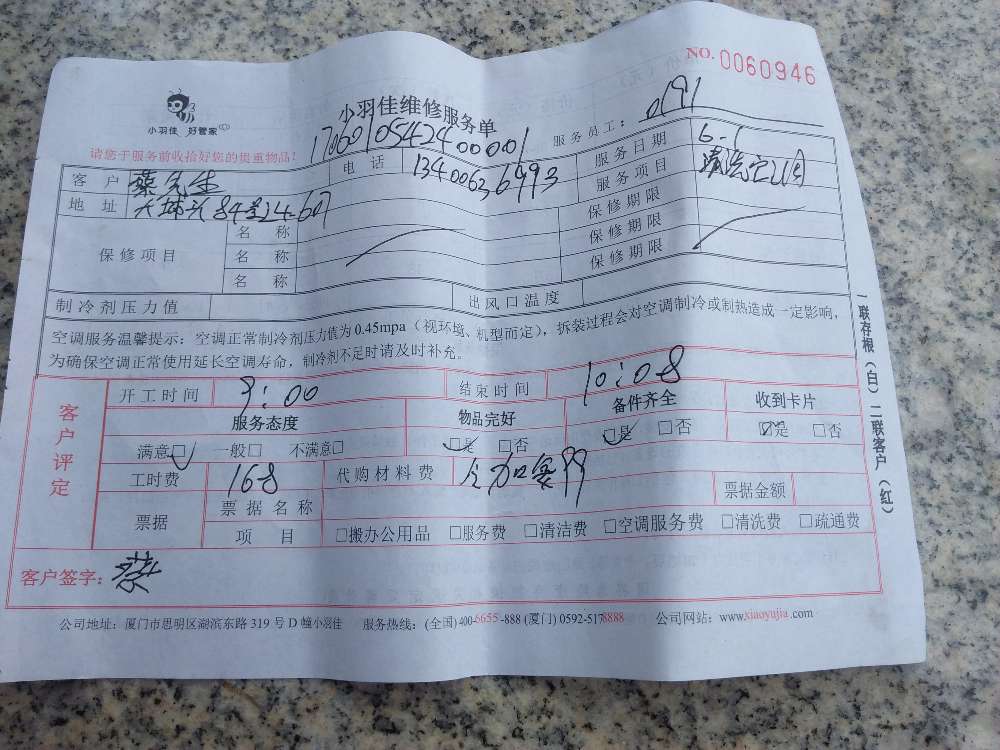 NO. 0060946
小羽佳 好管家
小羽佳维修服务单
服务员工: 0191
1706010542400001
请您于服务前收拾好您的贵重物品!
客户 蔡先生 电话 13400636993 服务日期 6-1
地址 84 24-607 服务项目 清洗空2周
保修项目 名称 保修期限
名称 保修期限
名称 保修期限
制冷剂压力值 出风口温度
空调服务温馨提示: 空调正常制冷剂压力值为 0.45mpa (视环境、机型而定), 拆装过程会对空调制冷或制热造成一定影响,
为确保空调正常使用延长空调寿命, 制冷剂不足时请及时补充。
客户评定
开工时间 9:00 结束时间 10:08
服务态度 物品完好 备件齐全 收到卡片
满意□ 一般□ 不满意□ □是 □否 □是 □否 □是 □否
工时费 168 代购材料费
票据 票据名称 票据金额
项目 □搬办公用品 □服务费 □清洁费 □空调服务费 □清洗费 □疏通费
客户签字: 蔡
公司地址: 厦门市思明区湖滨东路 319 号 D 幢小羽佳 服务热线: (全国) 400-6655-888 (厦门) 0592-5178888 公司网站: www.xiaoyujia.com
一联存根(白) 二联客户(红)